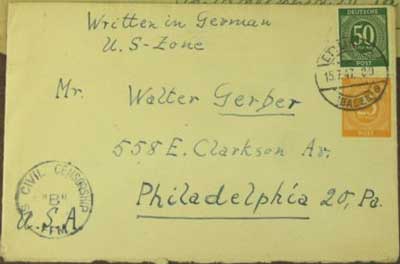 Written in German
U.S-Zone
DEUTSCHE
50
POST
15.7.47
25
POST
Mr. Walter Gerber
558 E. Clarkson Av.
Philadelphia 20, Pa.
U.S.A
CIVIL CENSORSHIP
"B"